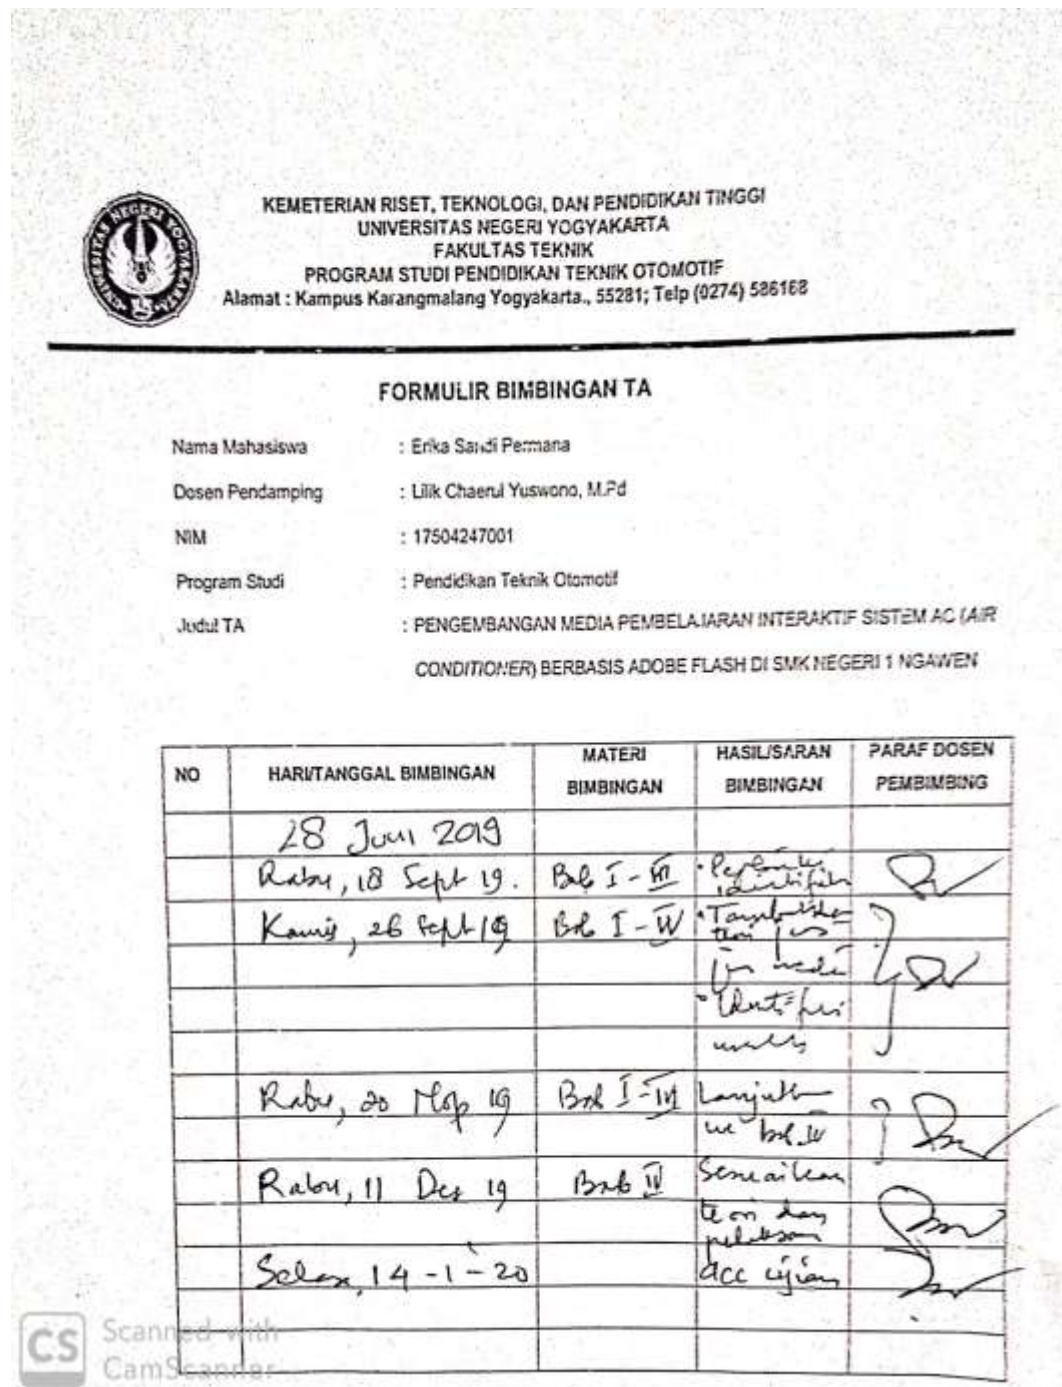 UNIVERSITAS NEGERI YOGYAKARTA
KEMETERIAN RISET, TEKNOLOGI, DAN PENDIDIKAN TINGGI
UNIVERSITAS NEGERI YOGYAKARTA
FAKULTAS TEKNIK
PROGRAM STUDI PENDIDIKAN TEKNIK OTOMOTIF
Alamat : Kampus Karangmalang Yogyakarta., 55281; Telp (0274) 586168
FORMULIR BIMBINGAN TA
Nama Mahasiswa : Erika Sandi Permana
Dosen Pendamping : Lilik Chaerul Yuswono, M.Pd
NIM : 17504247001
Program Studi : Pendidikan Teknik Otomotif
Judul TA : PENGEMBANGAN MEDIA PEMBELAJARAN INTERAKTIF SISTEM AC (AIR
CONDITIONER) BERBASIS ADOBE FLASH DI SMK NEGERI 1 NGAWEN
NO HARI/TANGGAL BIMBINGAN MATERI BIMBINGAN HASIL/SARAN BIMBINGAN PARAF DOSEN PEMBIMBING
28 Juni 2019
Rabu, 18 Sept 19. Bab I - III
Kamis, 26 Sept 19 Bab I - IV
Rabu, 20 Nop 19 Bab I - III Lanjutkan
Rabu, 11 Des 19 Bab IV Sesuaikan
teori dan
Selasa, 14 - 1 - 20 acc ujian
CS Scanned with
CamScanner